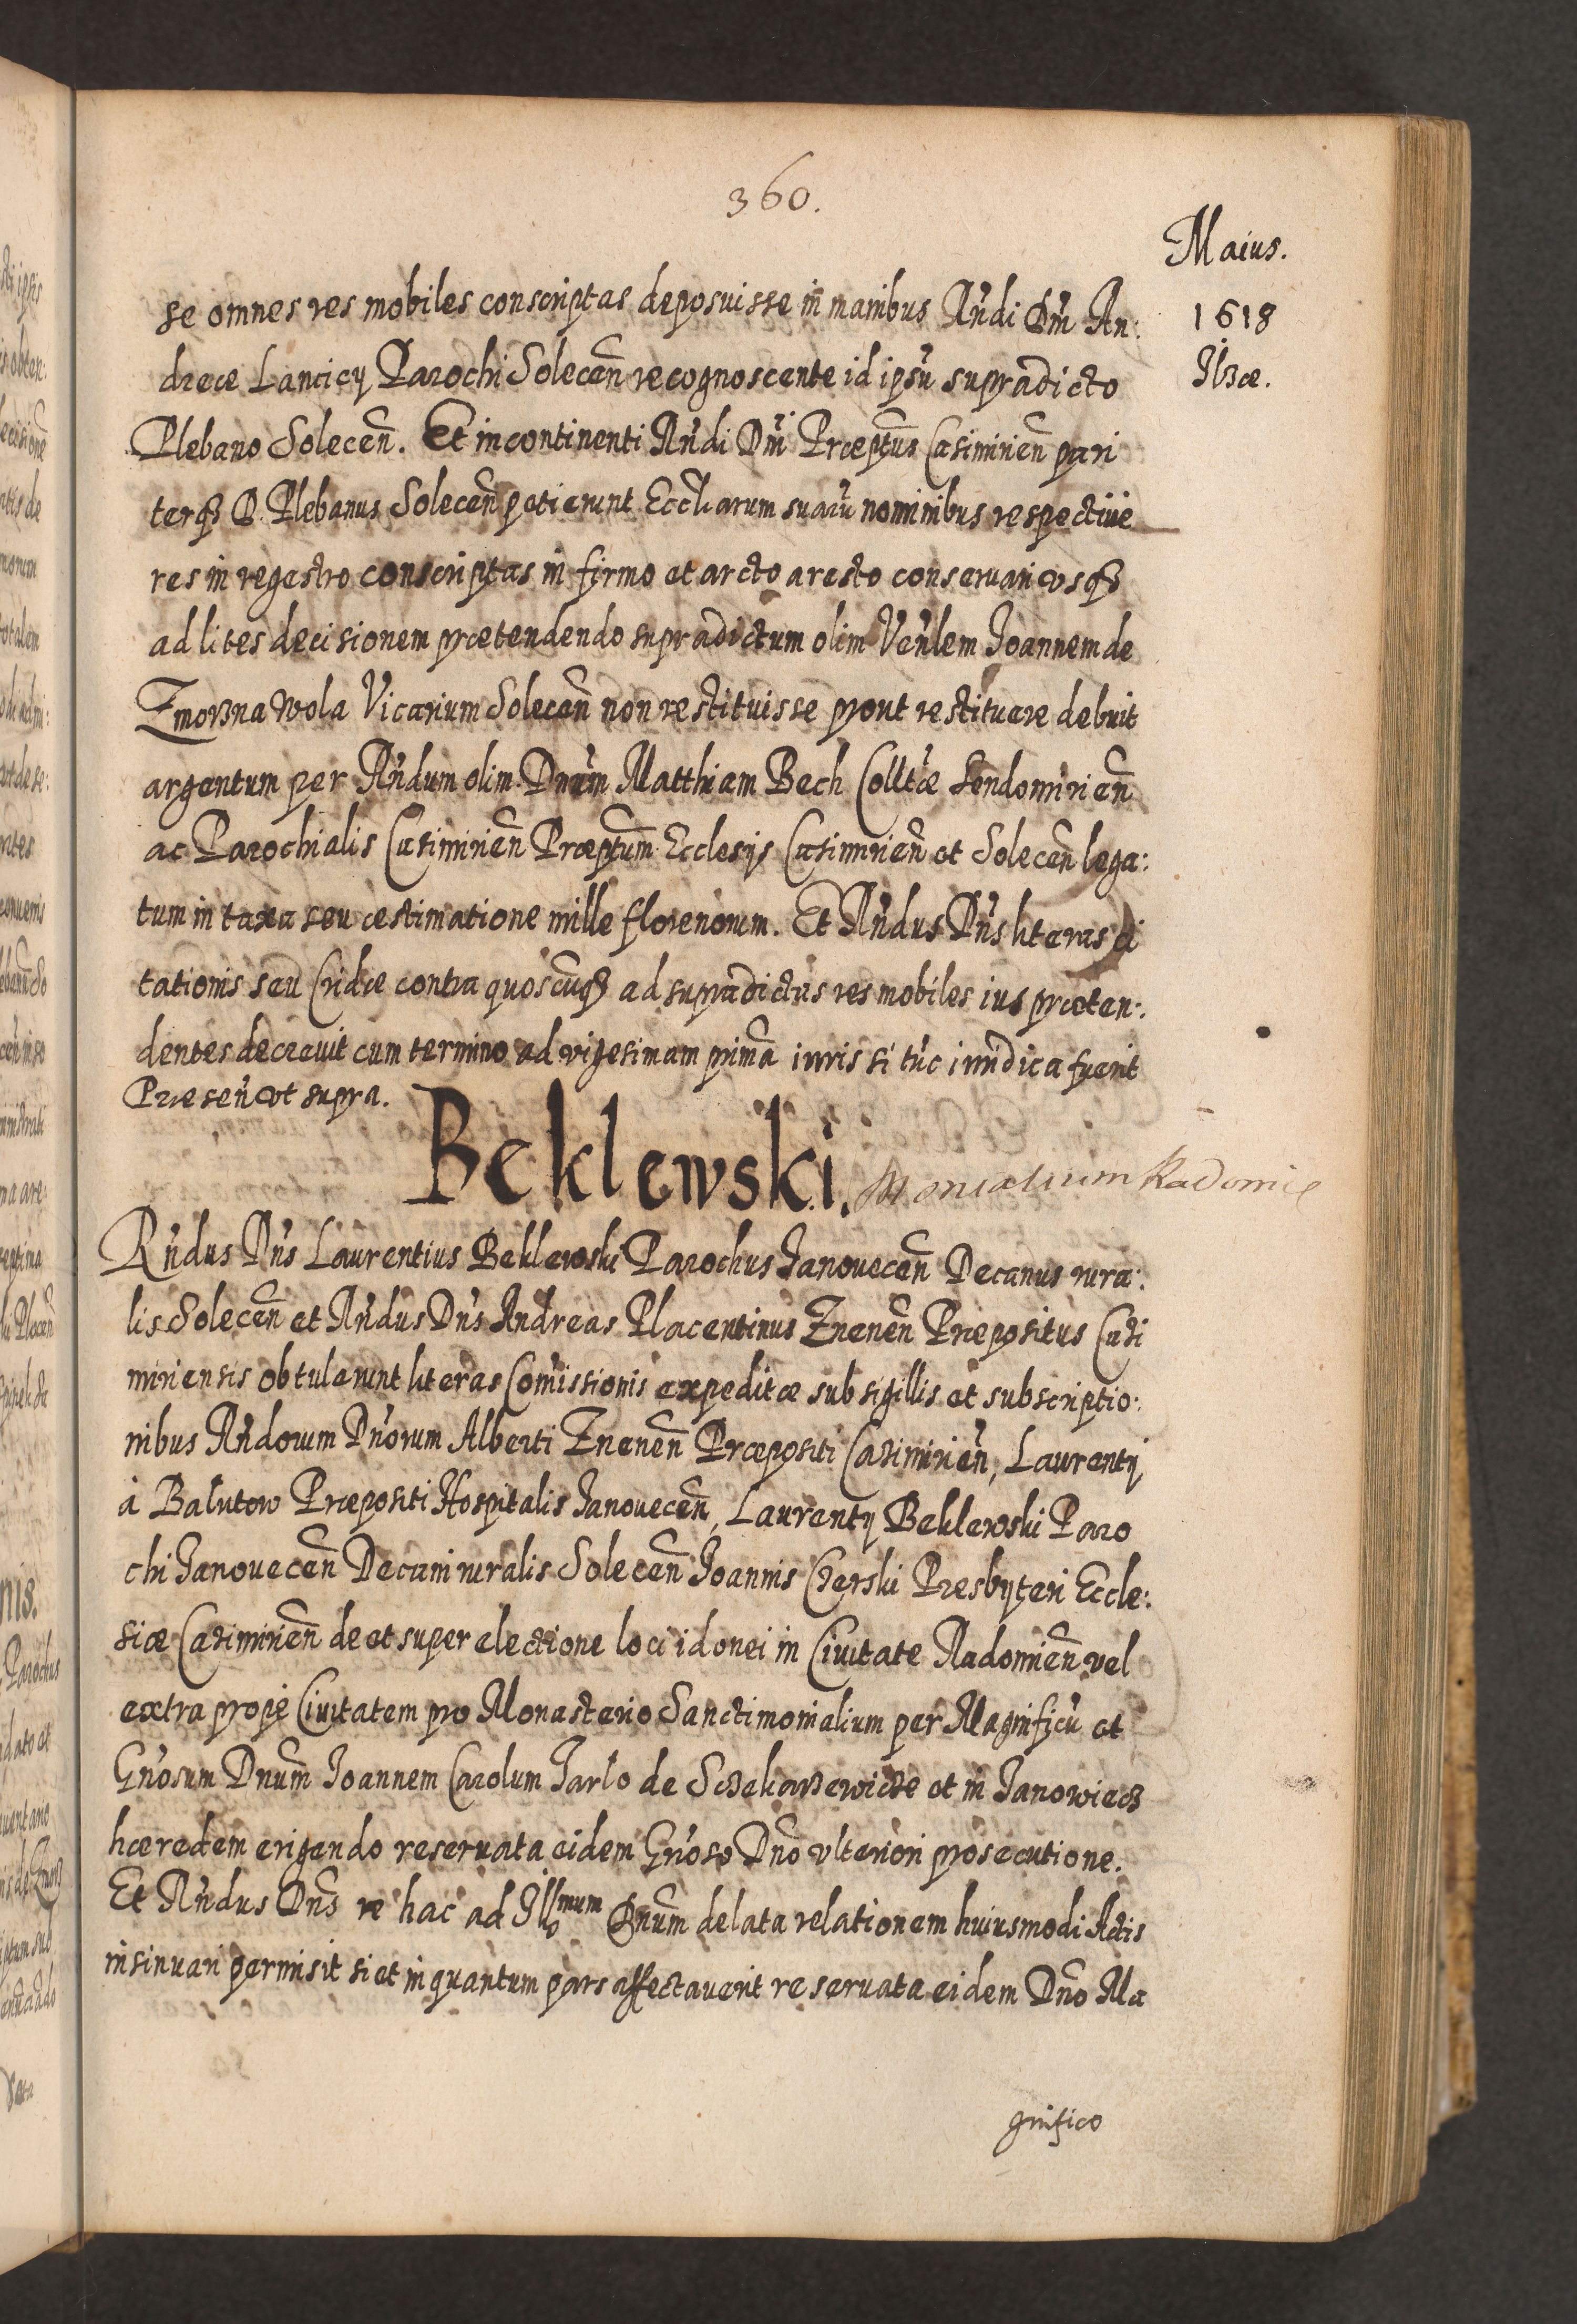 360.
Maius.
1618
Ilzæ.
se omnes res mobiles conscriptas deposuisse in manibus Rndi Dni An:
dreæ Lancicy Parochi Solecen recognoscente id ipsu supradicto
Plebano Solecen. Et in continenti Rndi Dni Præptus Casimirien pari
terq3 D. Plebanus Solecen petierunt Eccliarum suaru nominibus respectiue
res in regestro conscriptas in firmo et arcto aresto conseruari vsq3
ad lites decisionem prætendendo supradictum olim Venlem Joannem de
Zmorzna wola Vicarium Solecen non restituisse prout restituere debuit
argentum per Rndum olim Dnum Matthiam Bech Colltæ Sendomirien
ac Parochialis Casimirien Præptum Ecclesijs Casimirien et Solecen lega:
tum in taxa seu æstimatione mille florenorum. Et Rndus Dns literas ci
tationis seu Cridæ contra quoscuq3 ad supradictas res mobiles ius præten:
dentes decreuit cum termino ad vigesimam prima iuris si tuc iuridica fuerit
Præsen vt supra.
Beklewski.
Monialium Radomie
Rndus Dns Laurentius Beklewski Parochus Janouecen Decanus rura:
lis Solecen et Rndus Dns Andreas Placentinus Znenen Præpositus Casi
miriensis obtulerunt literas Comissionis expeditæ sub sigillis et subscriptio:
nibus Rndorum Dnorum Alberti Znenen Præpositi Casimirien, Laurentij
à Balutow Præpositi Hospitalis Janouecen, Laurentij Beklewski Paro
chi Janouecen Decani ruralis Solecen Joannis Czerski Presbyteri Eccle:
siæ Casimirien de et super electione loci idonei in Ciuitate Radomien vel
extra prope Ciuitatem pro Monasterio Sanctimonialium per Magnificu et
Gnosum Dnum Joannem Carolum Tarlo de Sczekarzewicze et in Janowiec3
hæredem erigendo reseruata eidem Gnoso Dno vlteriori prosecutione.
Et Rndus Dns re hac ad Illmum Dnum delata relationem huiusmodi Actis
insinuari permisit si et inquantum pars affectauerit reseruata eidem Dno Ma
gnifico